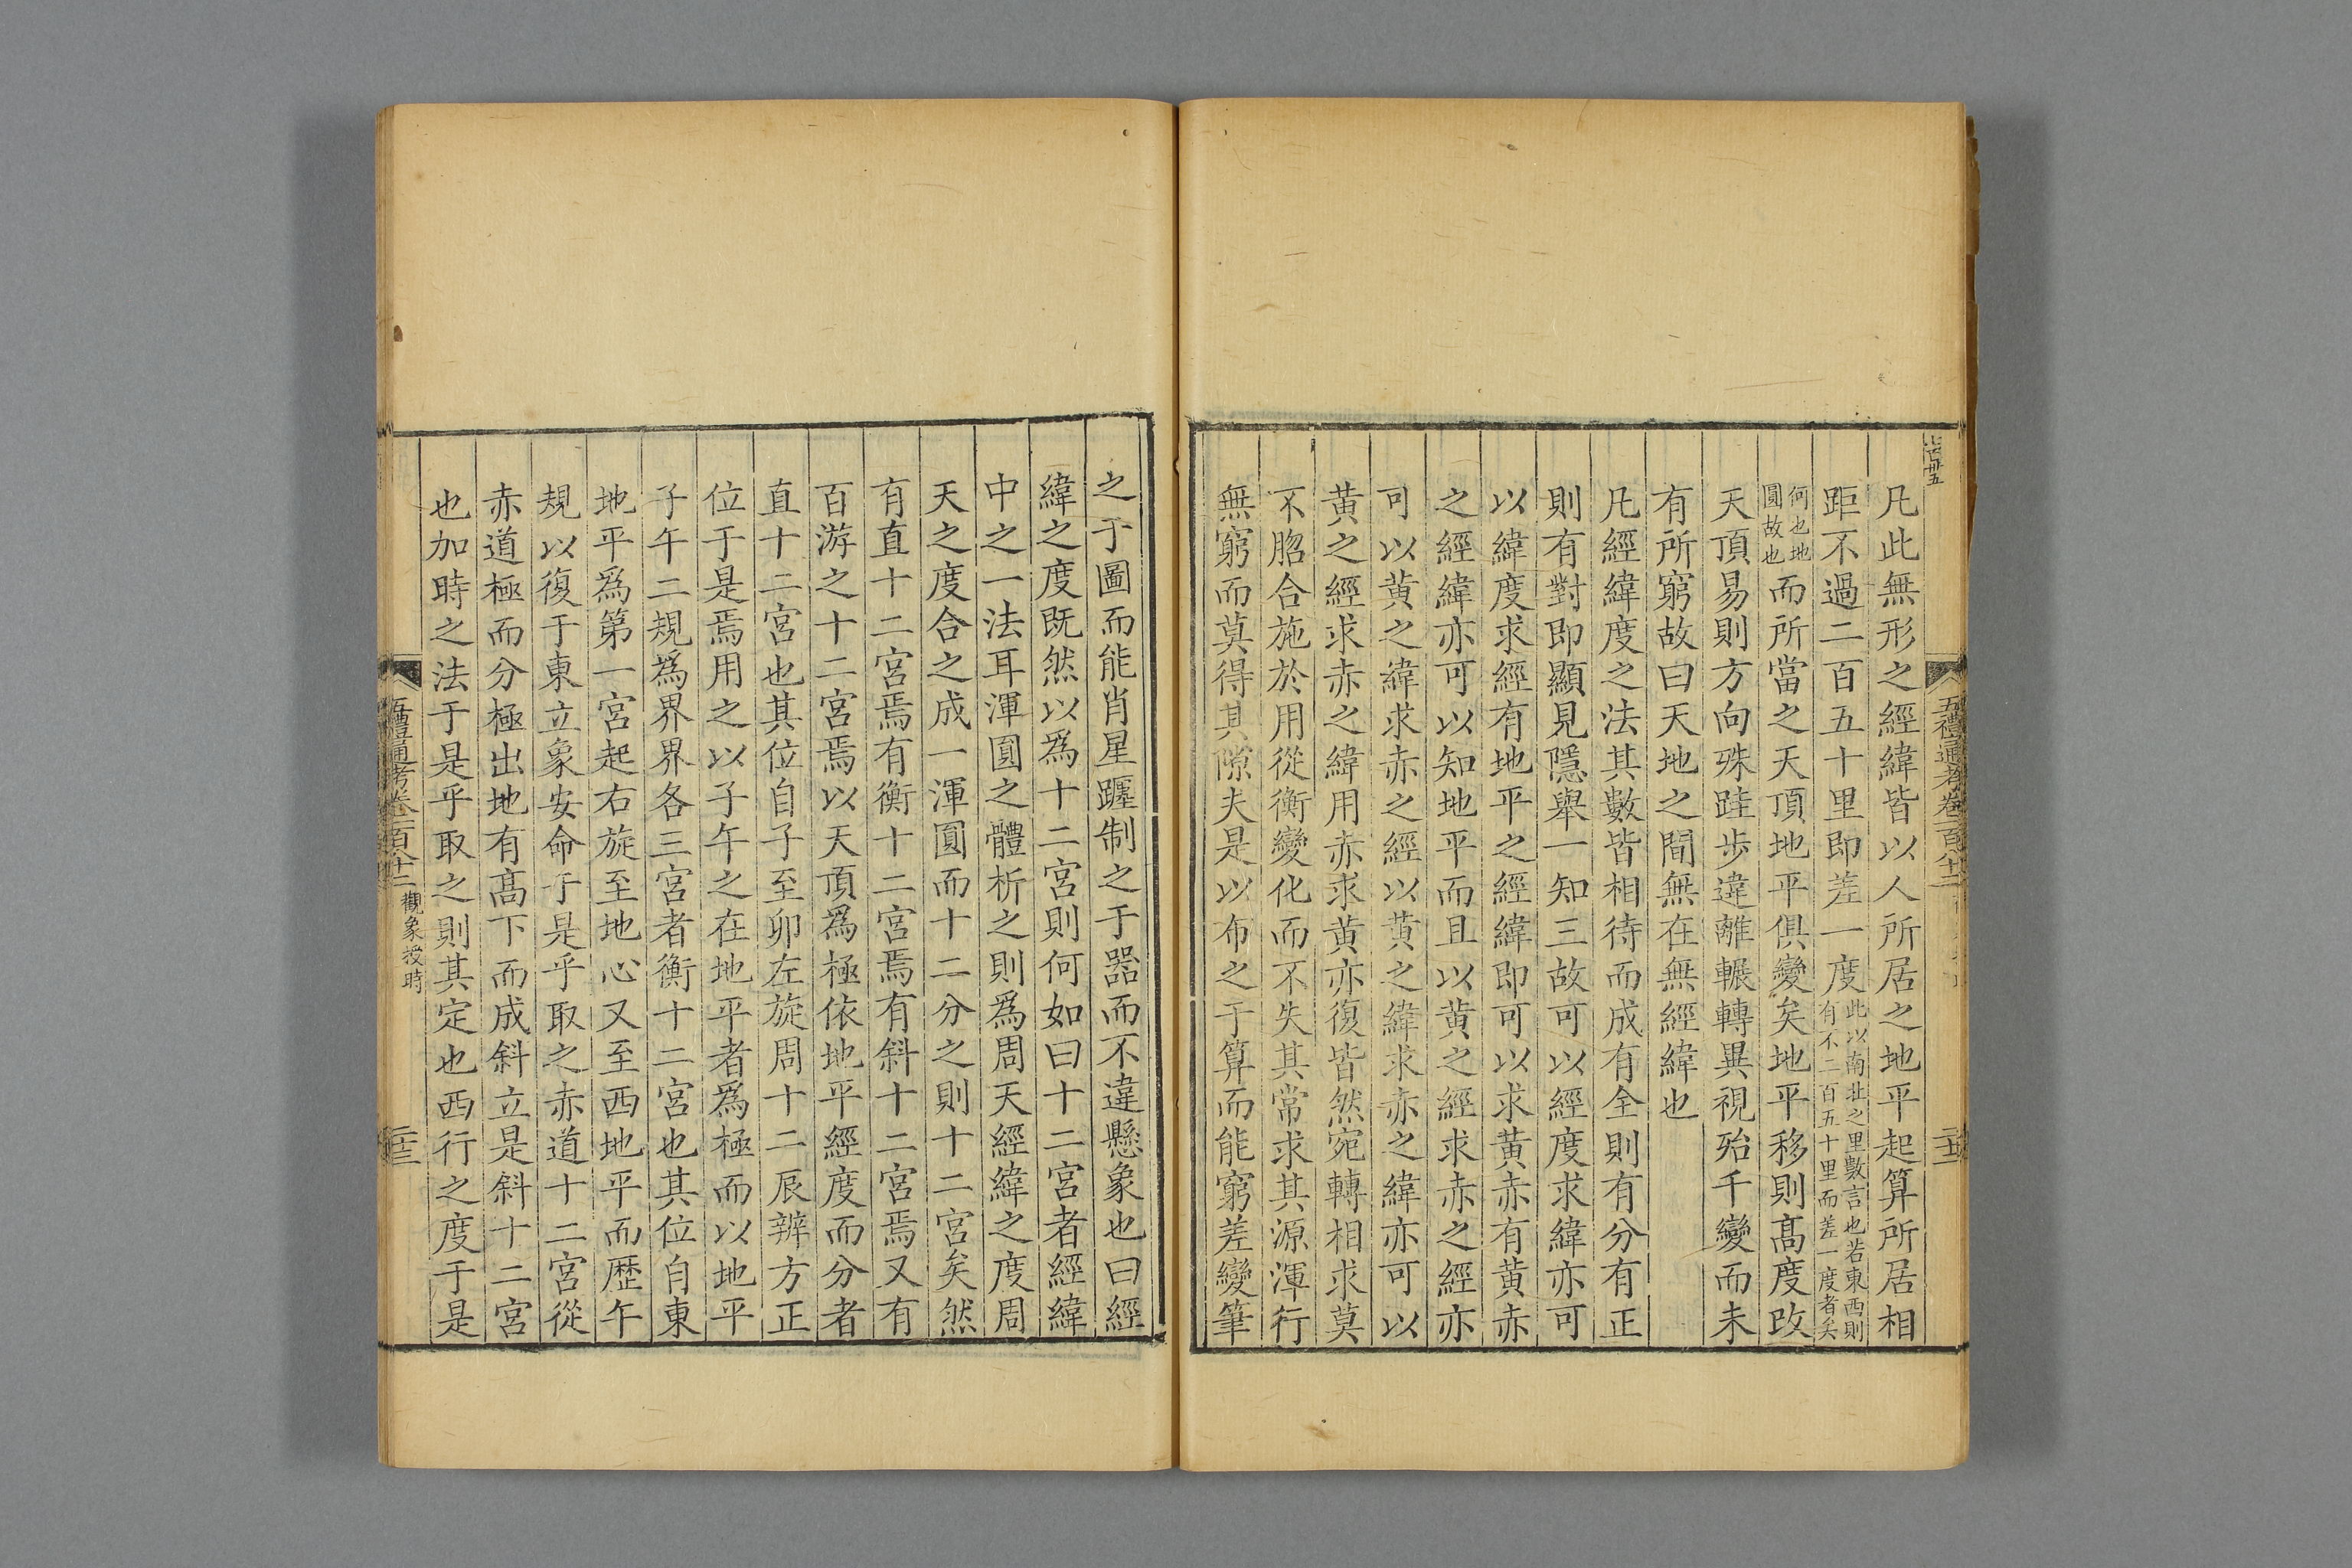 凡此無形之經緯皆以人所居之地平起算所居相
距不過二百五十里即差一度此以南北之里數言也若東西則有不二百五十里而差一度者矣
何也地圓故也而所當之天頂地平俱變矣地平移則髙度改
天頂易則方向殊跬步違離輾轉異視殆千變而未
有所窮故曰天地之間無在無經緯也
凡經緯度之法其數皆相待而成有全則有分有正
則有對即顯見隱舉一知三故可以經度求緯亦可
以緯度求經有地平之經緯即可以求黄赤有黄赤
之經緯亦可以知地平而且以黄之經求赤之經亦
可以黄之緯求赤之經以黄之緯求赤之緯亦可以
黄之經求赤之緯用赤求黄亦復皆然宛轉相求莫
不脗合施於用從衡變化而不失其常求其源渾行
無窮而莫得其隙夫是以布之于算而能窮差變筆
之于圖而能肖星躔制之于器而不違懸象也曰經
緯之度既然以為十二宮則何如曰十二宮者經緯
中之一法耳渾圓之體析之則為周天經緯之度周
天之度合之成一渾圓而十二分之則十二宮矣然
有直十二宮焉有衡十二宮焉有斜十二宮焉又有
百游之十二宮焉以天頂為極依地平經度而分者
直十二宮也其位自子至卯左旋周十二辰辨方正
位于是焉用之以子午之在地平者為極而以地平
子午二規為界界各三宮者衡十二宮也其位自東
地平為第一宮起右旋至地心又至西地平而歷午
規以復于東立象安命于是乎取之赤道十二宮從
赤道極而分極出地有髙下而成斜立是斜十二宮
也加時之法于是乎取之則其定也西行之度于是
五禮通考卷一百八十二 觀象授時
二十三
五禮通考卷一百八十二